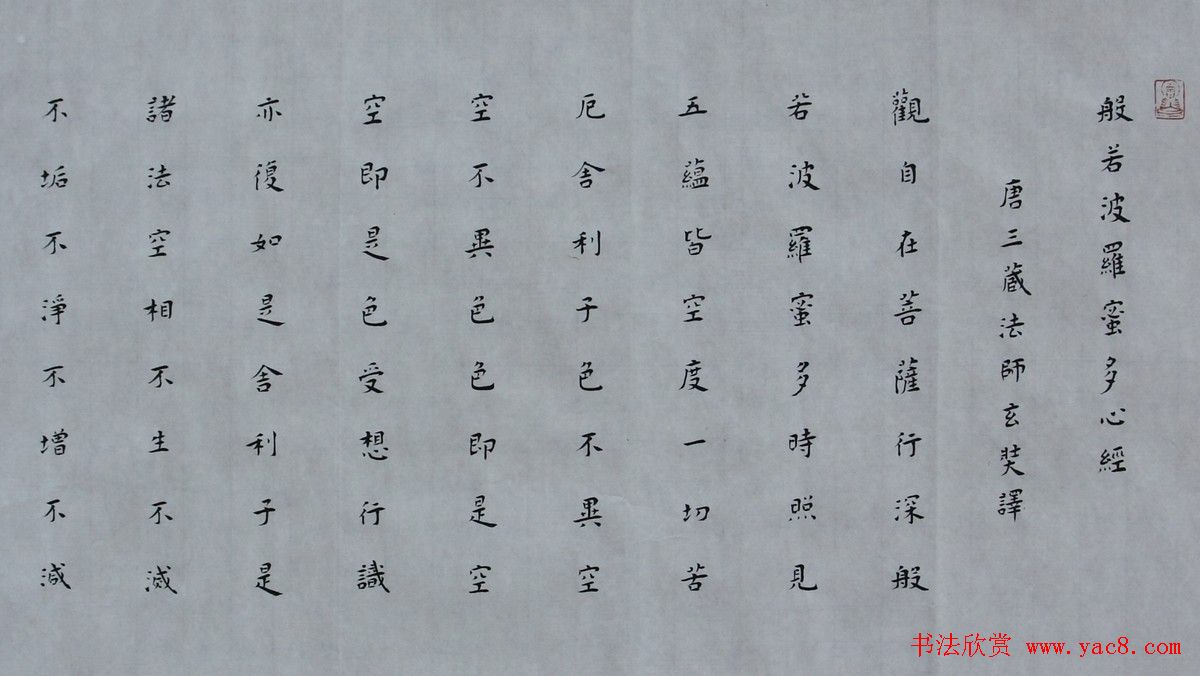 般若波羅蜜多心經
唐三蔵法師玄奘譯
觀自在菩薩行深般
若波羅蜜多時照見
五蘊皆空度一切苦
厄舍利子色不異空
空不異色色即是空
空即是色受想行識
亦復如是舍利子是
諸法空相不生不滅
不垢不淨不增不減
书法欣赏 www.yac8.com